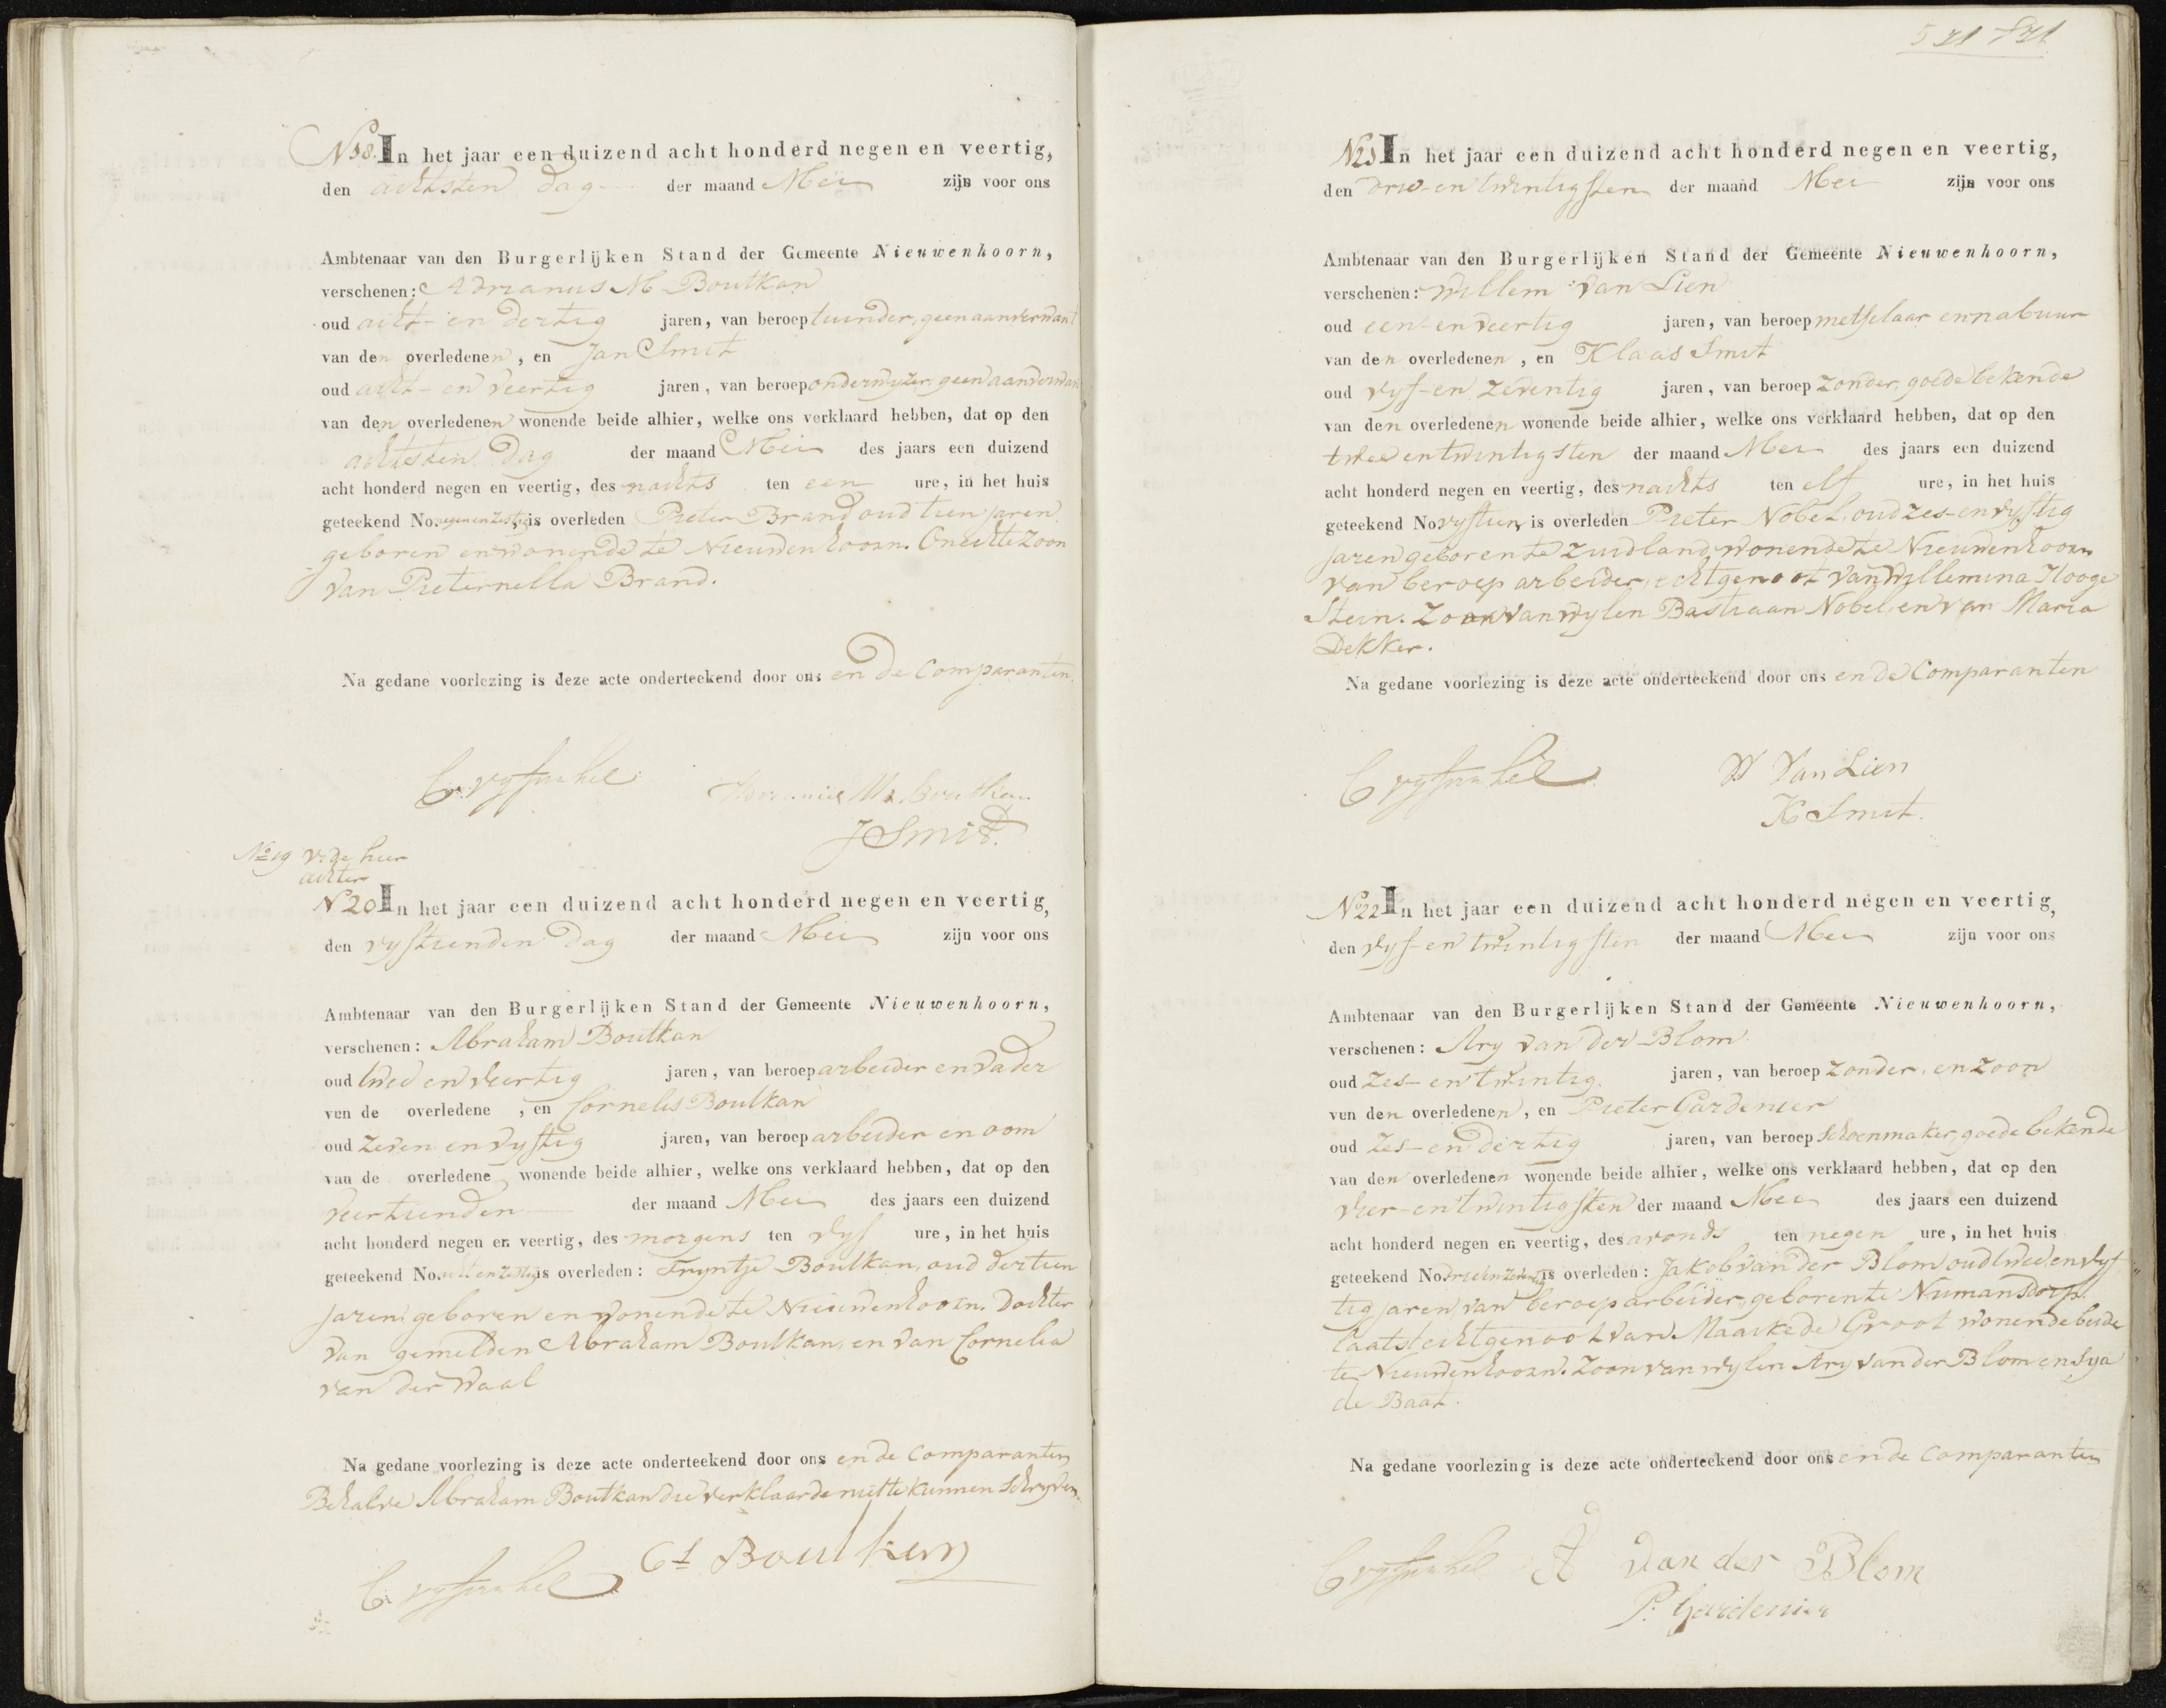 N18. In het jaar een duizend acht honderd negen en veertig,
den achtsten dag der maand Mei zijn voor ons
Ambtenaar van den Burgerlijken Stand der Gemeente Nieuwenhoorn,
verschenen: Adrianus M Boutkan
oud acht- en dertig jaren, van beroep tuinder, geen aanverwant
van den overledenen, en Jan Smit
oud acht- en veertig jaren, van beroep onderwyzer, geen aanverwant
van den overledenen wonende beide alhier, welke ons verklaard hebben, dat op den
achtsten dag der maand Mei des jaars een duizend
acht honderd negen en veertig, des nachts ten een ure, in het huis
geteekend No. negenenzestig, is overleden Pieter Brand oud tien jaren
geboren en wonende te Nieuwenhoorn. Onechte Zoon
van Pieternella Brand.
Na gedane voorlezing is deze acte onderteekend door ons en de Comparanten
J Smit.
No 19 vide hier
achter
N 20 In het jaar een duizend acht honderd negen en veertig,
den vyftienden dag der maand Mei zijn voor ons
Ambtenaar van den Burgerlijken Stand der Gemeente Nieuwenhoorn,
verschenen: Abraham Boutkan
oud twee en veertig jaren, van beroep arbeider en vader
van de overledene, en Cornelis Boutkan
oud zeven en vyftig jaren, van beroep arbeider en oom
van de overledene wonende beide alhier, welke ons verklaard hebben, dat op den
veertienden der maand Mei des jaars een duizend
acht honderd negen en veertig, des morgens ten vyf ure, in het huis
geteekend No. acht en zestig is overleden: Tryntje Boutkan, oud dertien
jaren, geboren en wonende te Nieuwenhoorn. Dochter
van gemelden Abraham Boutkan, en van Cornelia
van der Waal
Na gedane voorlezing is deze acte onderteekend door ons en de Comparanten
Behalve Abraham Boutkan die verklaarde niet te kunnen schryven.
Cs Boutkan
521 521
N21 In het jaar een duizend acht honderd negen en veertig,
den drie-en twintigsten der maand Mei zijn voor ons
Ambtenaar van den Burgerlijken Stand der Gemeente Nieuwenhoorn,
verschenen: Willem van Lien
oud een- en veertig jaren, van beroep metselaar en nabuur
van den overledenen, en Klaas Smit
oud vyf-en zeventig jaren, van beroep zonder, goede bekende
van den overledenen wonende beide alhier, welke ons verklaard hebben, dat op den
twee en twintigsten der maand Mei des jaars een duizend
acht honderd negen en veertig, des nachts ten elf ure, in het huis
geteekend No vyftien, is overleden Pieter Nobel, oud zes-en vyftig
jaren geboren te Zuidland, wonende te Nieuwenhoorn
van beroep arbeider, echtgenoot van Willemina Hooge
Stein. Zoon van wylen Bastiaan Nobel, en van Maria
Dekker.
Na gedane voorlezing is deze acte onderteekend door ons en de Comparanten
W Van Lien
K Smit.
N22 In het jaar een duizend acht honderd negen en veertig,
den vyf-en twintigsten der maand Mei zijn voor ons
Ambtenaar van den Burgerlijken Stand der Gemeente Nieuwenhoorn,
verschenen: Ary van der Blom
oud zes- en twintig jaren, van beroep zonder, en zoon
van den overledenen, en Pieter Gardenier
oud zes-en dertig jaren, van beroep Schoenmaker, goede bekende
van den overledenen wonende beide alhier, welke ons verklaard hebben, dat op den
vier-en twintigsten der maand Mei des jaars een duizend
acht honderd negen en veertig, des avonds ten negen ure, in het huis
geteekend No drieenzeventig is overleden: Jakob van der Blom oud twee en vyf
tig jaren van beroep arbeider, geboren te Numansdorp.
laatst echtgenoot van Maaike de Groot wonende beide
te Nieuwenhoorn. Zoon van wylen Ary van der Blom en Sya
de Baat.
Na gedane voorlezing is deze acte onderteekend door ons en de Comparanten
A van der Blom
P. Gardenier